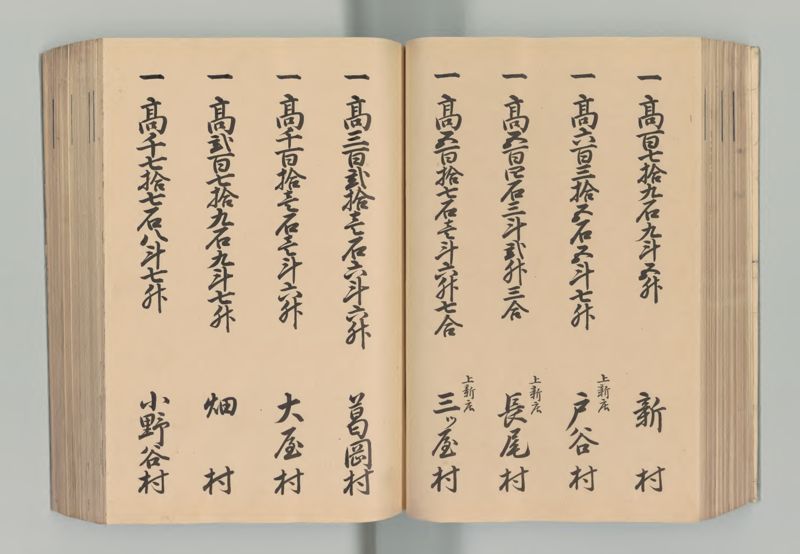 一 高百七拾九石九斗五升 新村
一 高六百三拾五石五斗七升 上新庄 戸谷村
一 高五百四石三斗弐升三合 上新庄 長尾村
一 高五百拾七石壱斗六升七合 上新庄 三ッ屋村
一 高三百弐拾壱石六斗六升 葛岡村
一 高千百拾壱石壱斗六升 大屋村
一 高弐百七拾九石九斗七升 畑村
一 高千七拾七石八斗七升 小野谷村